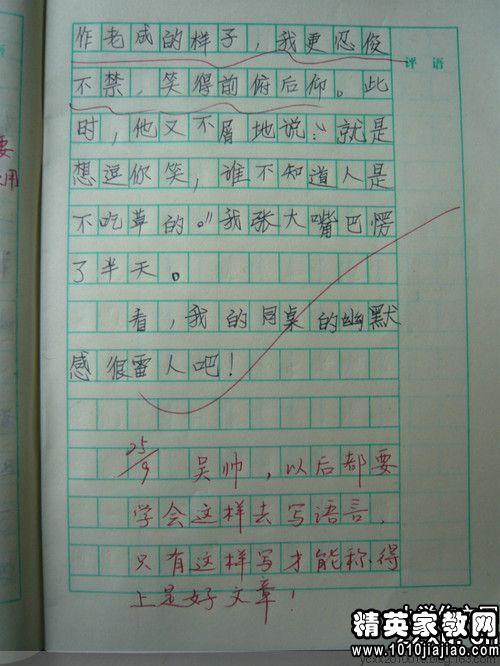 评语
作老成的样子，我更忍俊
不禁，笑得前俯后仰。此
时，他又不屑地说："就是
想逗你笑，谁不知道人是
不吃草的。"我张大嘴巴愣
了半天。
看，我的同桌的幽默
感很雷人吧！
25/9 吴帅，以后都要
学会这样去写语言，
只有这样写才能称得
上是好文章！
要
用
精英家教网
www.1010jiajiao.com